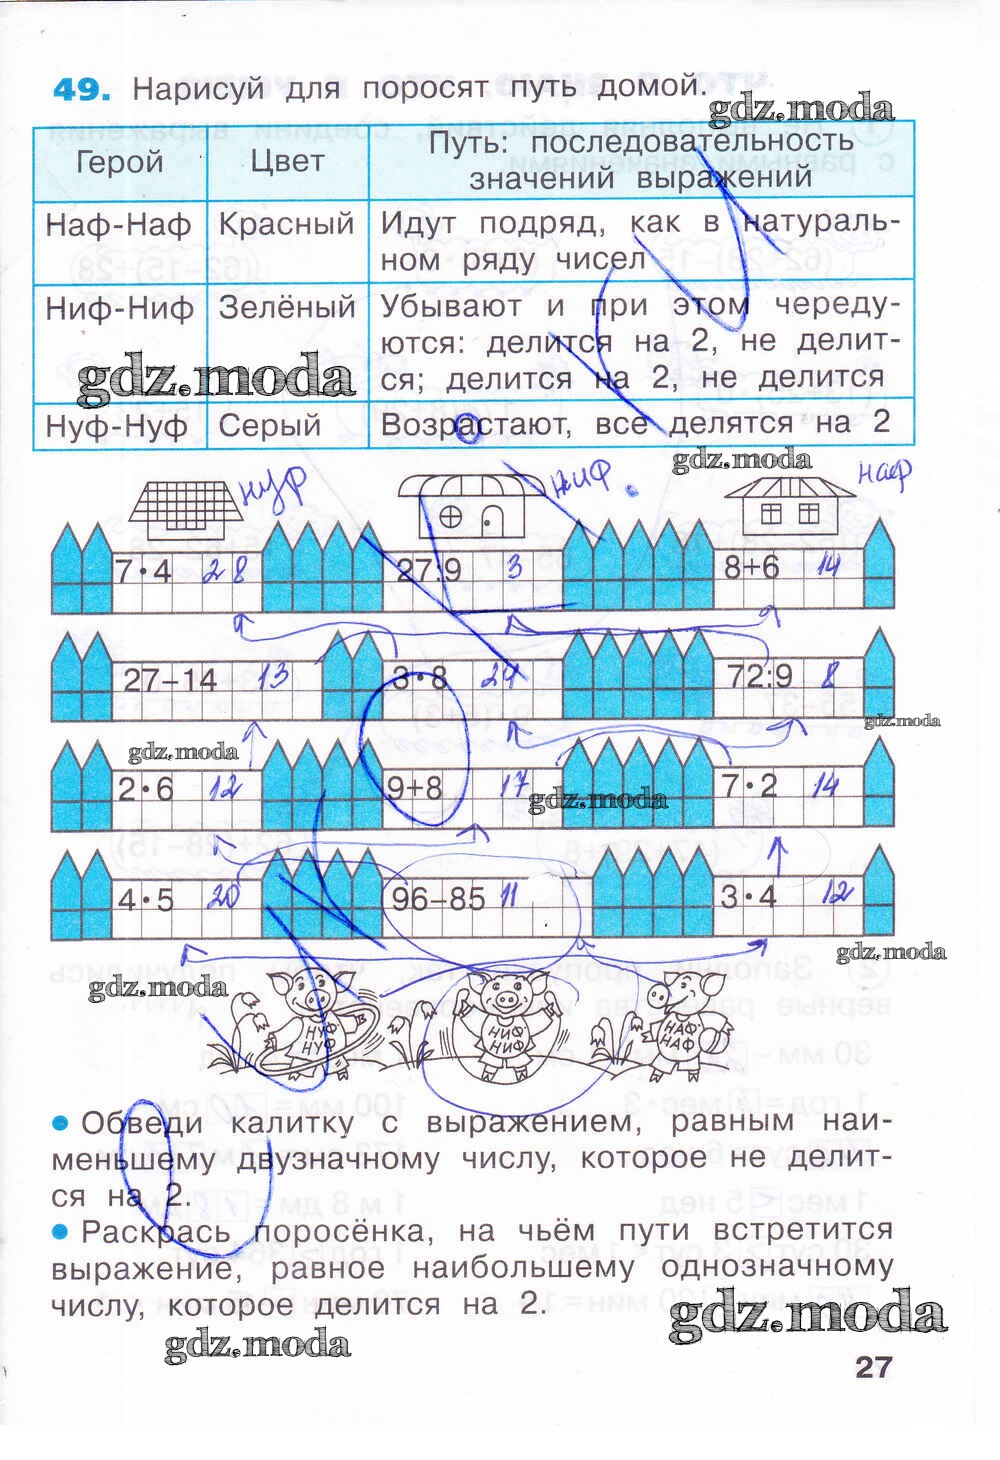 49. Нарисуй для поросят путь домой.
gdz.moda
Герой Цвет Путь: последовательность
значений выражений
Наф-Наф Красный Идут подряд, как в натураль-
ном ряду чисел
Ниф-Ниф Зелёный Убывают и при этом череду-
ются: делится на 2, не делит-
ся; делится на 2, не делится
gdz.moda
Нуф-Нуф Серый Возрастают, все делятся на 2
gdz.moda
нуф ниф наф
7·4 28 27:9 3 8+6 14
27−14 13 3·8 24 72:9 8
gdz.moda
gdz.moda
2·6 12 9+8 17 7·2 14
gdz.moda
4·5 20 96−85 11 3·4 12
gdz.moda
gdz.moda
НУФ- НИФ- НАФ-
НУФ НИФ НАФ
• Обведи калитку с выражением, равным наи-
меньшему двузначному числу, которое не делит-
ся на 2.
• Раскрась поросёнка, на чьём пути встретится
выражение, равное наибольшему однозначному
числу, которое делится на 2.
gdz.moda
gdz.moda
27